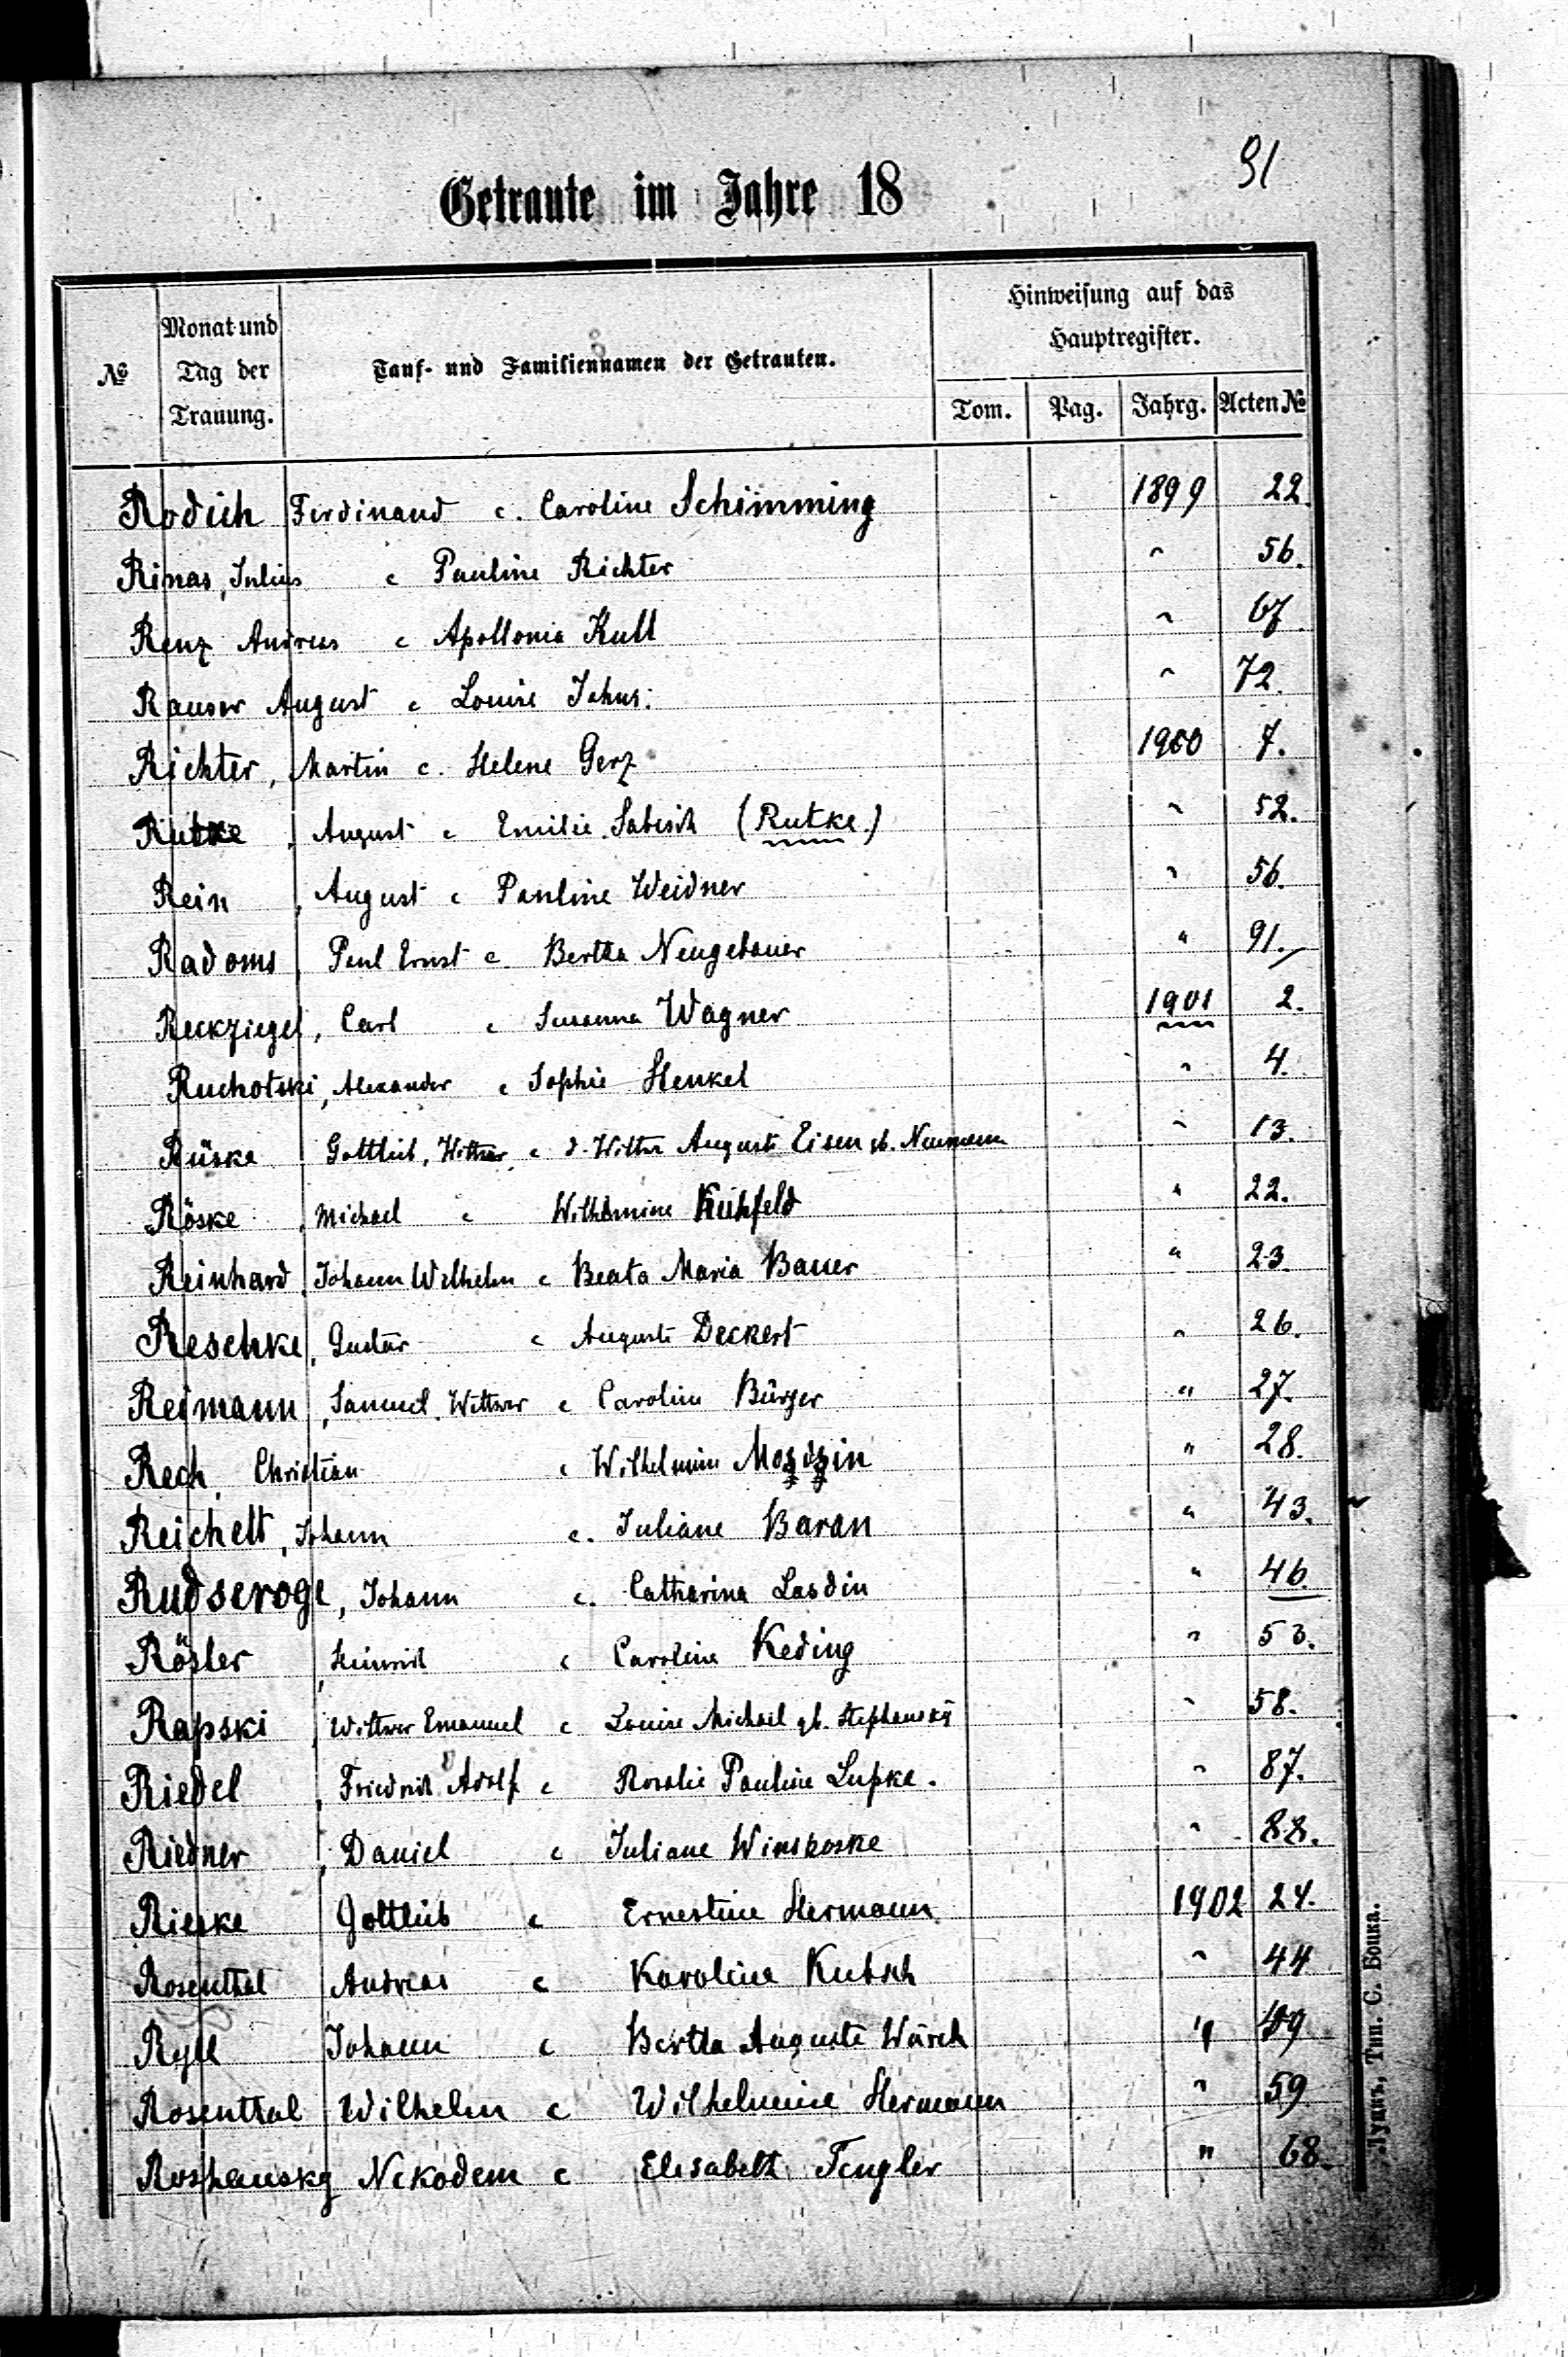 91
Getraute im Jahre 18
№ Monat und Tag der Trauung. Tauf- und Familiennamen der Getrauten. Hinweisung auf das Hauptregister.
Tom. Pag. Jahrg. Acten №
Rodich Ferdinand c. Caroline Schimming 1899 22.
Rimas, Julius c Pauline Richter " 56.
Renz Andreas c Apollonia Kull " 67.
Rauser August c Louise Jahns. " 72.
Richter, Martin c. Helene Gerz 1900 7.
Rutke, August c Emilie Sabisch (Rutke.) " 52.
Rein, August c Pauline Weidner " 56.
Radoms Paul Ernst c. Bertha Neugebauer " 91.
Reckziegel, Carl c Susanna Wagner 1901 2.
Ruchotski, Alexander c Sophie Henkel " 4.
Rüske Gottlieb, Wittwer, c d. Wittwe Auguste Eisen gb. Neumann " 13.
Röske, Michael c Wilhelmine Kuhfeld " 22.
Reinhard, Johann Wilhelm c Beata Maria Bauer " 23.
Reschke, Gustav c Auguste Deckert " 26.
Reimann, Samuel, Wittwer c Caroline Bürger " 27.
Rech, Christian c Wilhelmine " 28.
Reichelt, Johann c. Juliane Baran " 43.
Rudseroge, Johann c. Catharina Lasdin " 46.
Rösler, Heinrich c Caroline Keding " 53.
Rapski, Wittwer Emanuel c Louise Michael gb. Stephansky " 58.
Riedel, Friedrich Adolf c Rosalie Pauline Lupke. " 87.
Riedner, Daniel c Juliane Winskoske " 88.
Rieske Gottlieb c Ernestine Hermann 1902 24.
Rosenthal Andreas c Karoline Kutsch " 44
Ryll Johann c Bertha Auguste Würch " 49
Rosenthal Wilhelm c Wilhelmine Hermann " 59
Roshansky Nekodem c Elisabeth Tengler " 68.
Луцкъ, Тип. С. Бошка.